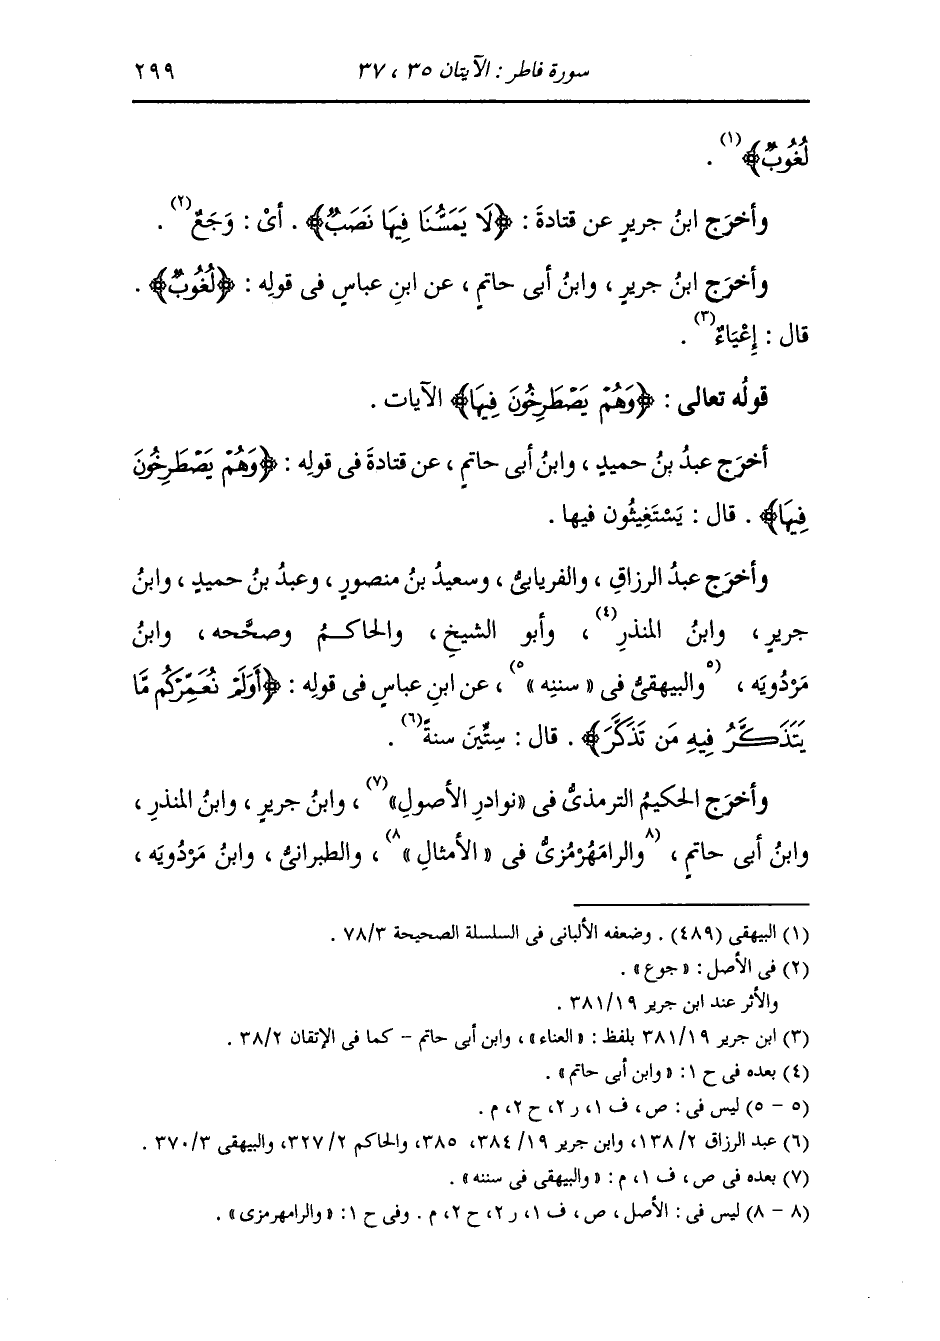 سورة فاطر : الآيتان ٣٥ ، ٣٧ ٢٩٩
لُغُوبٌ﴾(١) .
وأخرَج ابنُ جريرٍ عن قتادةَ : ﴿لَا يَمَسُّنَا فِيهَا نَصَبٌ﴾ . أىْ : وَجَعٌ(٢) .
وأخرَج ابنُ جريرٍ ، وابنُ أبى حاتمٍ ، عن ابنِ عباسٍ فى قولِه : ﴿لُغُوبٌ﴾ .
قال : إِعْيَاءٌ(٣) .
قولُه تعالى : ﴿وَهُمْ يَصْطَرِخُونَ فِيهَا﴾ الآيات .
أخرَج عبدُ بنُ حميدٍ ، وابنُ أبى حاتمٍ ، عن قتادةَ فى قولِه : ﴿وَهُمْ يَصْطَرِخُونَ
فِيهَا﴾ . قال : يَسْتَغِيثُون فيها .
وأخرَج عبدُ الرزاقِ ، والفريابىُّ ، وسعيدُ بنُ منصورٍ ، وعبدُ بنُ حميدٍ ، وابنُ
جريرٍ ، وابنُ المنذرِ(٤) ، وأبو الشيخِ ، والحاكمُ وصحَّحه ، وابنُ
مَرْدُويَه ، (٥والبيهقىُّ فى « سننِه »٥) ، عن ابنِ عباسٍ فى قولِه : ﴿أَوَلَمْ نُعَمِّرْكُم مَّا
يَتَذَكَّرُ فِيهِ مَن تَذَكَّرَ﴾ . قال : سِتِّينَ سنةً(٦) .
وأخرَج الحكيمُ الترمذىُّ فى «نوادرِ الأصولِ»(٧) ، وابنُ جريرٍ ، وابنُ المنذرِ ،
وابنُ أبى حاتمٍ ، (٨والرامَهُرْمُزىُّ فى « الأمثالِ »٨) ، والطبرانىُّ ، وابنُ مَرْدُويَه ،
(١) البيهقى (٤٨٩) . وضعفه الألبانى فى السلسلة الصحيحة ٧٨/٣ .
(٢) فى الأصل : « جوع » .
والأثر عند ابن جرير ٣٨١/١٩ .
(٣) ابن جرير ٣٨١/١٩ بلفظ : « العناء » ، وابن أبى حاتم - كما فى الإتقان ٣٨/٢ .
(٤) بعده فى ح ١: « وابن أبى حاتم » .
(٥ - ٥) ليس فى : ص ، ف ١، ر ٢، ح ٢، م .
(٦) عبد الرزاق ١٣٨/٢، وابن جرير ٣٨٤/١٩، ٣٨٥، والحاكم ٣٢٧/٢، والبيهقى ٣٧٠/٣ .
(٧) بعده فى ص ، ف ١، م : « والبيهقى فى سننه » .
(٨ - ٨) ليس فى : الأصل ، ص ، ف ١، ر ٢، ح ٢، م . وفى ح ١: « والرامهرمزى » .